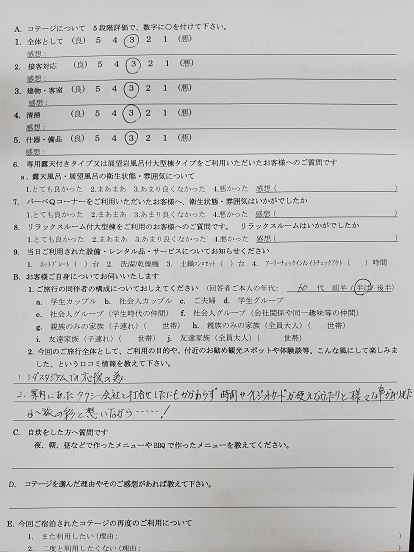 A. コテージについて 5段階評価で、数字に○を付けて下さい。
1. 全体として (良) 5 4 3 2 1 (悪)
感想:
2. 接客対応 (良) 5 4 3 2 1 (悪)
感想:
3. 建物・客室 (良) 5 4 3 2 1 (悪)
感想:
4. 清掃 (良) 5 4 3 2 1 (悪)
感想:
5. 什器・備品 (良) 5 4 3 2 1 (悪)
感想:
6. 専用露天付きタイプ又は展望岩風呂付大型棟タイプをご利用いただいたお客様へのご質問です
a. 露天風呂・展望風呂の衛生状態・雰囲気について
1.とても良かった 2.まあまあ 3.あまり良くなかった 4.悪かった 感想( )
7. バーベQコーナーをご利用いただいたお客様へ、衛生状態・雰囲気はいかがでしたか
1.とても良かった 2.まあまあ 3.あまり良くなかった 4.悪かった 感想( )
8. リラックスルーム付大型棟をご利用のお客様へのご質問です。 リラックスルームはいかがでしたか
1.とても良かった 2.まあまあ 3.あまり良くなかった 4.悪かった 感想( )
9. 当日ご利用された設備・レンタル品・サービスについてお知らせください
1. ホットプレート( )台 2. 洗濯/乾燥機 3. 土鍋コンロセット( )台 4. アーリーチェックイン/レイトチェックアウト( )時間
B. お客様ご自身についてお伺いいたします
1. ご旅行の同伴者の構成についておしえてください (回答者ご本人の年代: 60 代 前半 半ば 後半)
a. 学生カップル b. 社会人カップル c. ご夫婦 d. 学生グループ
e. 社会人グループ(学生時代の仲間) f. 社会人グループ(会社関係や同一趣味等の仲間)
g. 親族のみの家族(子連れ)( 世帯) h. 親族のみの家族(全員大人)( 世帯)
i. 友達家族(子連れ)( 世帯) j. 友達家族(全員大人)( 世帯)
2. 今回のご旅行全体として、ご利用の目的や、付近のお勧め観光スポットや体験談等、こんな風にして楽しみました、という口コミ情報を教えて下さい。
1.
2. タクシー会社と打合せしたにもかかわらず 時間やクレジットカードが使えなかたりと 様々な事がありました
旅の彩と思いながら……!
C. 自炊をした方へ質問です
夜、朝、昼などで作ったメニューやBBQで作ったメニューを教えてください。
D. コテージを選んだ理由やそのご感想があれば教えて下さい。
E. 今回ご宿泊されたコテージの再度のご利用について
1. また利用したい(理由: )
2. 二度と利用したくない(理由: )